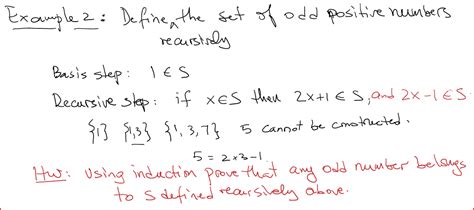 Example 2: Define the set of odd positive numbers
recursively
Basis step: 1 ∈ S
Recursive step: if x ∈ S then 2x+1 ∈ S, and 2x-1 ∈ S.
{1} {1,3} {1,3,7} 5 cannot be constructed.
5 = 2×3-1
HW: Using induction prove that any odd number belongs
to S defined recursively above.